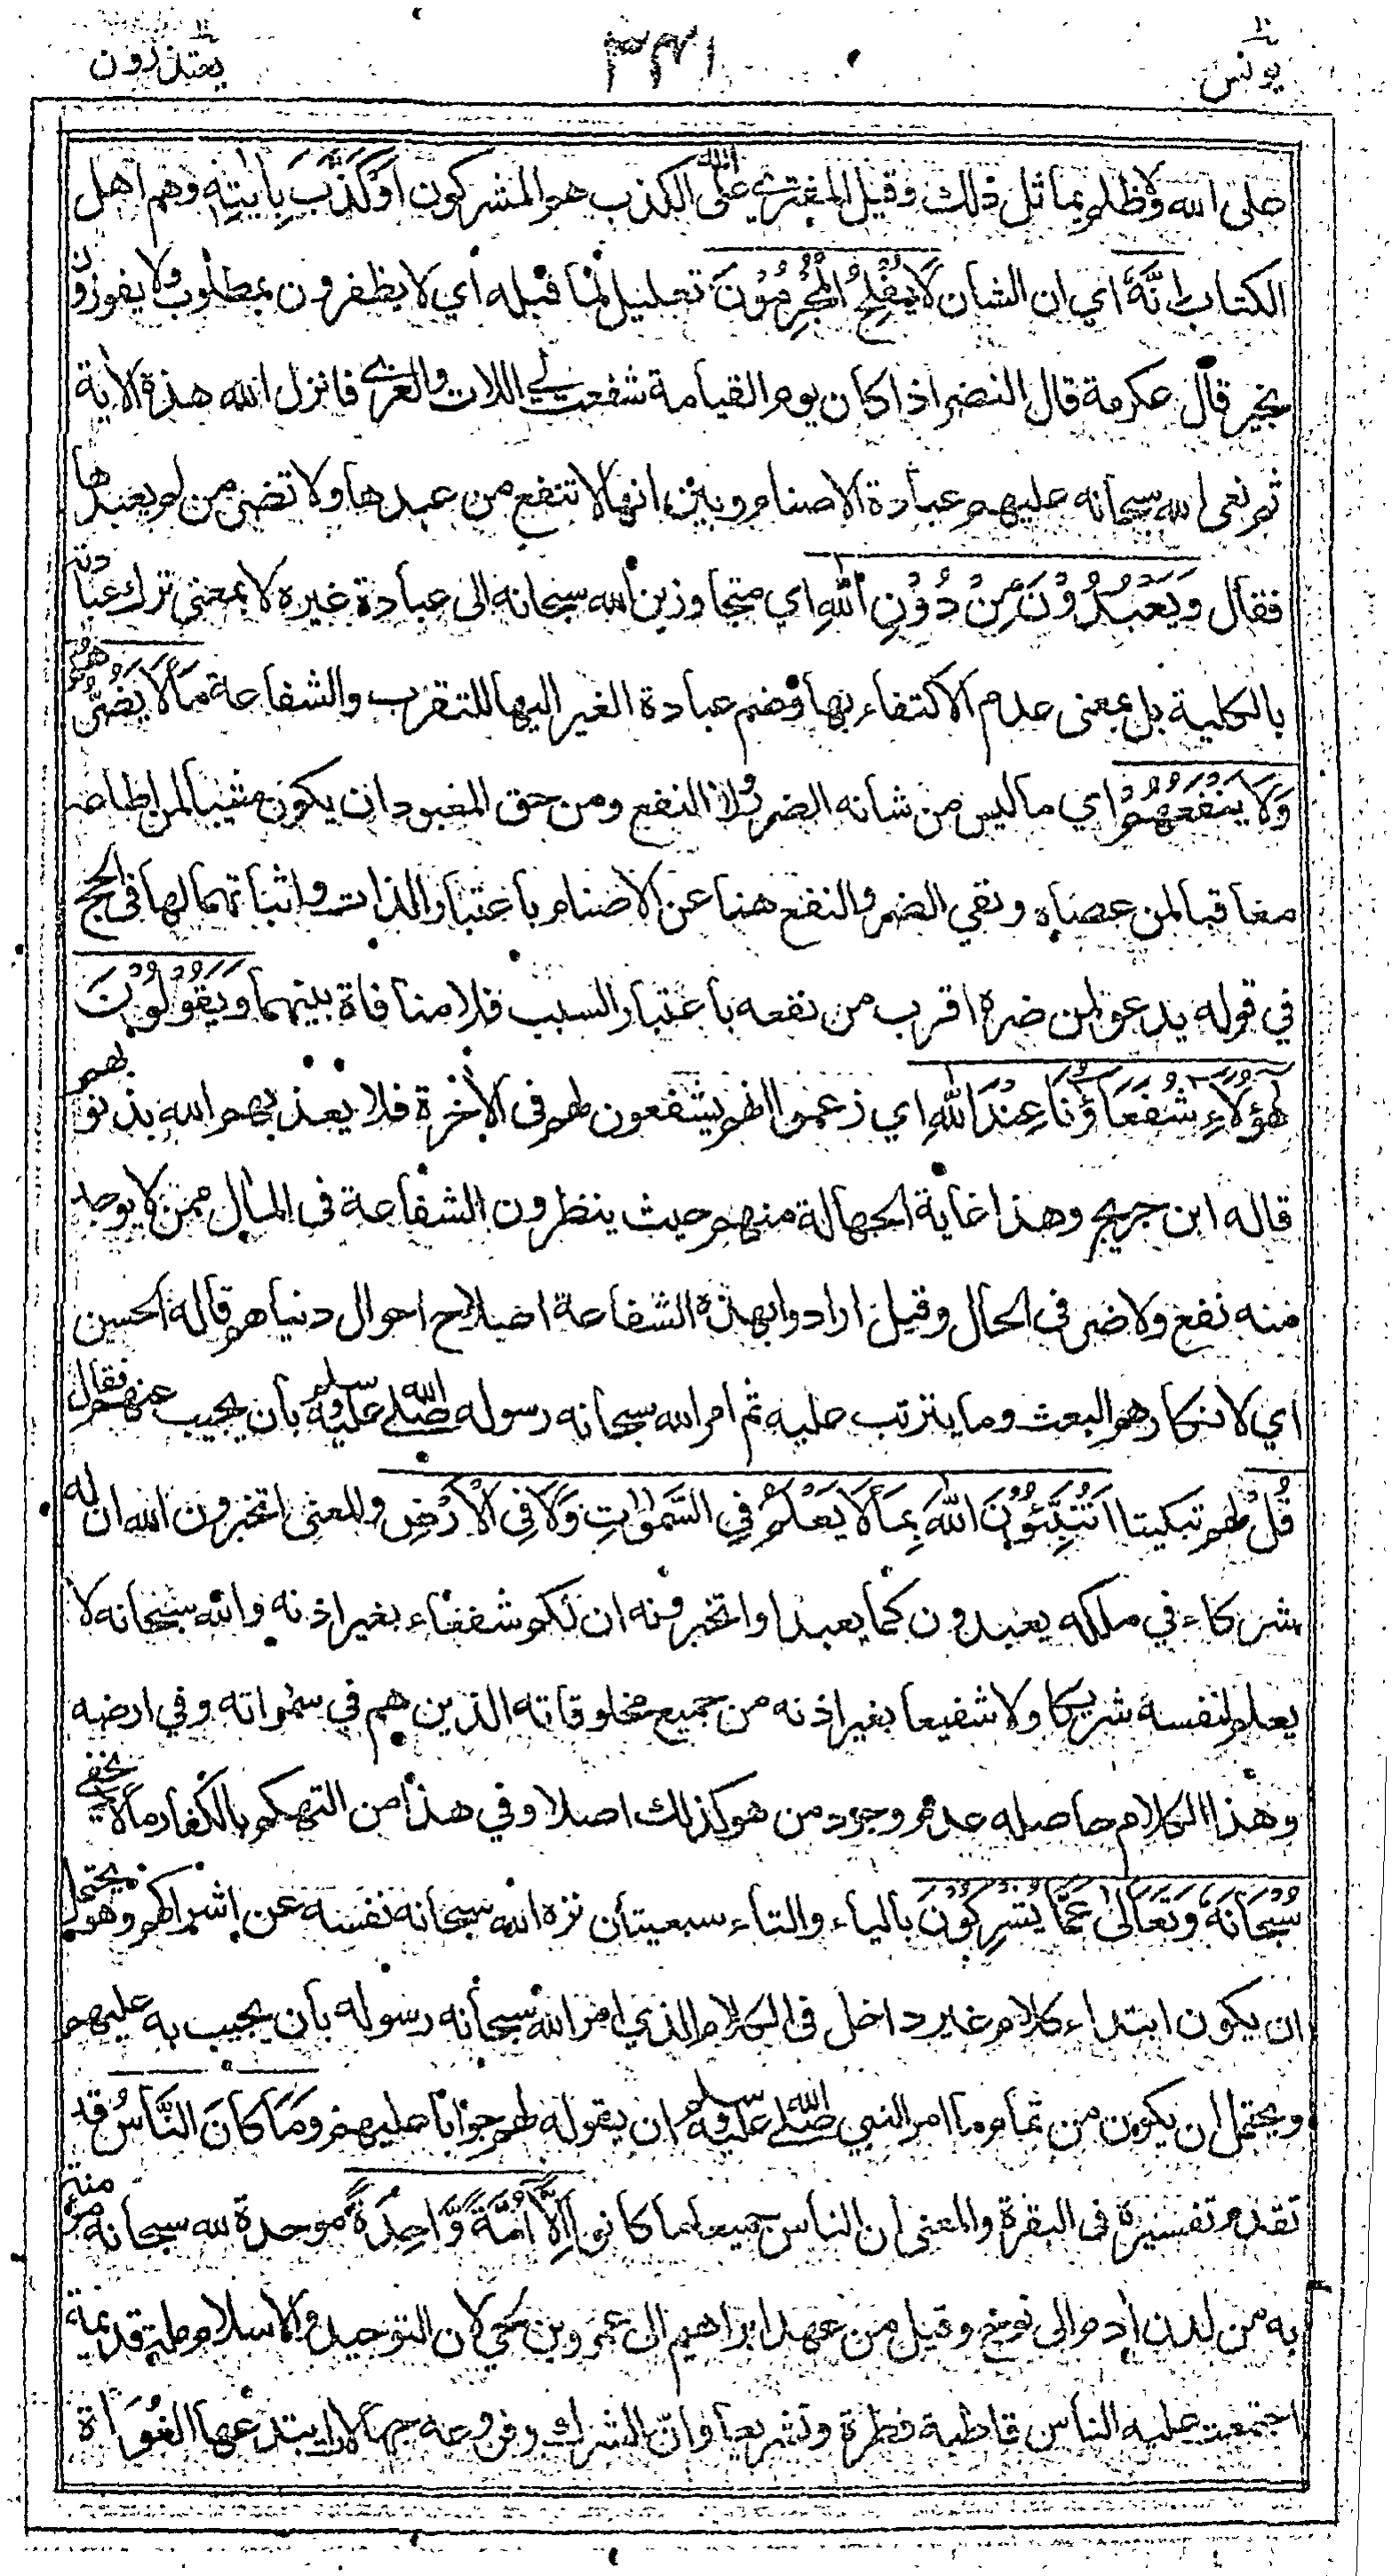 يونس ٣٣١ يعتذرون
على الله ولا ظلم يماثل ذلك وقيل المفتري على الله الكذب هو المشركون اَوْ كَذَّبَ بِاٰيٰتِهٖ وهم اهل
الكتاب اِنَّهٗ اي ان الشان لَا يُفْلِحُ الْمُجْرِمُوْنَ تعليل لما قبله أي لا يظفرون بمطلوب ولا يفوزون
بخير قال عكرمة قال النضر اذا كان يوم القيامة شفعت لي اللات والعزى فانزل الله هذه الآية
ثم نعى الله سبحانه عليهم عبادة الاصنام وبين انها لا تنفع من عبدها ولا تضر من لم يعبدها
فقال وَيَعْبُدُوْنَ مِنْ دُوْنِ اللهِ اي متجاوزين الله سبحانه الى عبادة غيره لا بمعنى ترك عبادته
بالكلية بل بمعنى عدم الاكتفاء بها وضم عبادة الغير اليها للتقرب والشفاعة مَا لَا يَضُرُّهُمْ
وَلَا يَنْفَعُهُمْ اي ما ليس من شانه الضر ولا النفع ومن حق المعبود ان يكون مثيبا لمن اطاعه
معاقبا لمن عصاه ونفي الضر والنفع هنا عن الاصنام باعتبار الذات واثباتهما لها في الحج
في قوله يدعو لمن ضره اقرب من نفعه باعتبار السبب فلا منافاة بينهما وَيَقُوْلُوْنَ
هٰٓؤُلَآءِ شُفَعَآؤُنَا عِنْدَ اللهِ اي زعموا انهم يشفعون لهم في الآخرة فلا يعذبهم الله بذنوبهم
قاله ابن جريج وهذا غاية الجهالة منهم حيث ينظرون الشفاعة في المال ممن لا يوجد
منه نفع ولا ضر في الحال وقيل ارادوا بهذه الشفاعة اصلاح احوال دنياهم قاله الحسن
اي لانكارهم البعث وما يترتب عليه ثم امر الله سبحانه رسوله صلى الله عليه وسلم بان يجيب عنهم فقال
قُلْ لهم تبكيتا اَتُنَبِّئُوْنَ اللهَ بِمَا لَا يَعْلَمُ فِي السَّمٰوٰتِ وَلَا فِي الْاَرْضِ والمعنى اتخبرون الله ان له
شركاء في ملكه يعبدون كما يعبد او اتخبرونه ان لكم شفعاء بغير اذنه والله سبحانه لا
يعلم لنفسه شريكا ولا شفيعا بغير اذنه من جميع مخلوقاته الذين هم في سمواته وفي ارضه
وهذا الكلام حاصله عدم وجود من هو كذلك اصلا وفي هذا من التهكم بالكفار ما لا يخفى
سُبْحَانَهٗ وَتَعَالٰى عَمَّا يُشْرِكُوْنَ بالياء والتاء سبعيتان نزه الله سبحانه نفسه عن اشراكهم وهو يحتمل
ان يكون ابتداء كلام غير داخل في الكلام الذي امر الله سبحانه رسوله بان يجيب به عليهم
ويحتمل ان يكون من تمام ما امر النبي صلى الله عليه وسلم ان يقوله لهم جوابا عليهم وَمَا كَانَ النَّاسُ قد
تقدم تفسيره في البقرة والمعنى ان الناس جميعا ما كانوا اِلَّا اُمَّةً وَّاحِدَةً موحدة لله سبحانه مؤمنة
به من لدن آدم الى نوح وقيل من عهد ابراهيم الى عمرو بن لحي لان التوحيد والاسلام ملة قديمة
اجتمعت عليه الناس قاطبة فطرة وتشريعا وان الشرك وفروعه جهالات ابتدعها الغواة